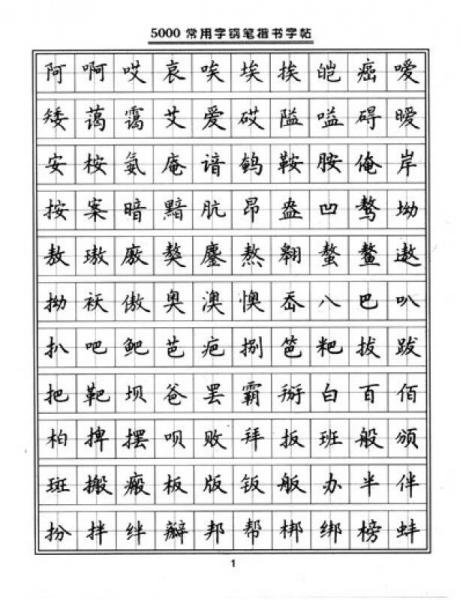 5000常用字钢笔楷书字帖
阿啊哎哀唉埃挨皑癌嗳
矮蔼霭艾爱砹隘嗌碍暧
安桉氨庵谙鹌鞍胺俺岸
按案暗黯肮昂盎凹骜坳
敖璈廒獒鏖熬翱螯鳌遨
拗袄傲奥澳懊岙八巴叭
扒吧鲃芭疤捌笆粑拔跋
把靶坝爸罢霸掰白百佰
柏捭摆呗败拜扳班般颁
斑搬瘢板版钣舨办半伴
扮拌绊瓣邦帮梆绑榜蚌
1